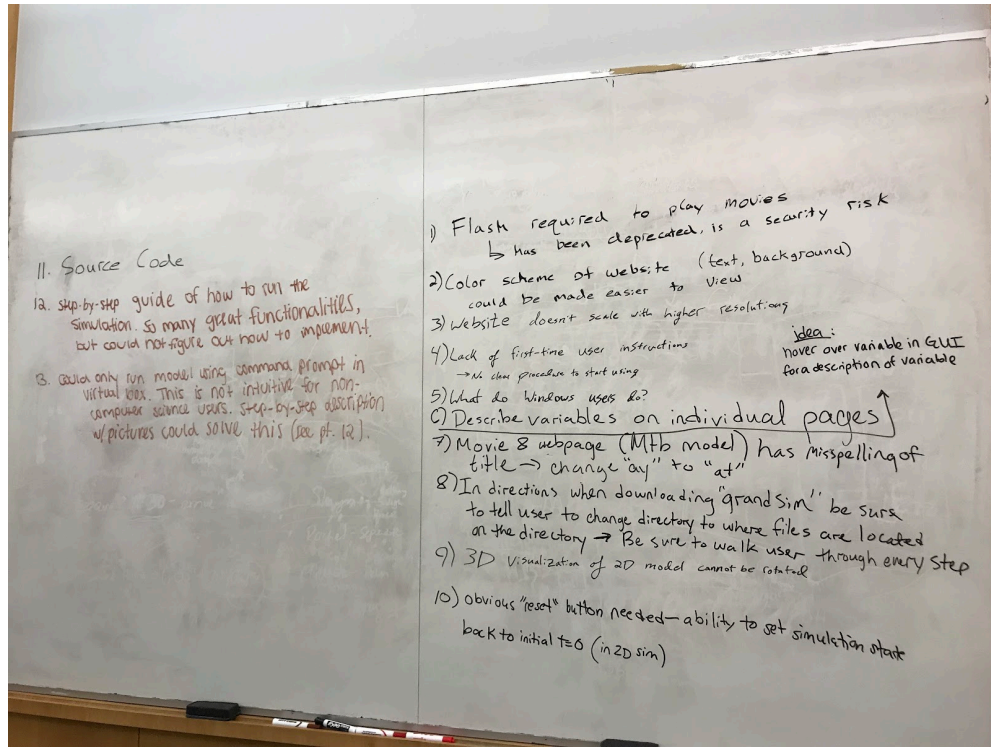 11. Source Code
12. step-by-step guide of how to run the
simulation. So many great functionalities,
but could not figure out how to implement.
13. Could only run model using command prompt in
virtual box. This is not intuitive for non-
computer science users. Step-by-step description
w/pictures could solve this (see pt. 12).
1) Flash required to play movies
↳ has been deprecated, is a security risk
2) Color scheme of website (text, background)
could be made easier to view
3) Website doesn't scale with higher resolutions
4) Lack of first-time user instructions
→ No clear procedure to start using
5) What do Windows users do?
6) Describe variables on individual pages
idea:
hover over variable in GUI
for a description of variable
7) Movie 8 webpage (Mtb model) has misspelling of
title → change "ay" to "at"
8) In directions when downloading "grandsim" be sure
to tell user to change directory to where files are located
on the directory → Be sure to walk user through every step
9) 3D visualization of 2D model cannot be rotated
10) obvious "reset" button needed — ability to set simulation state
back to initial t=0 (in 2D sim)